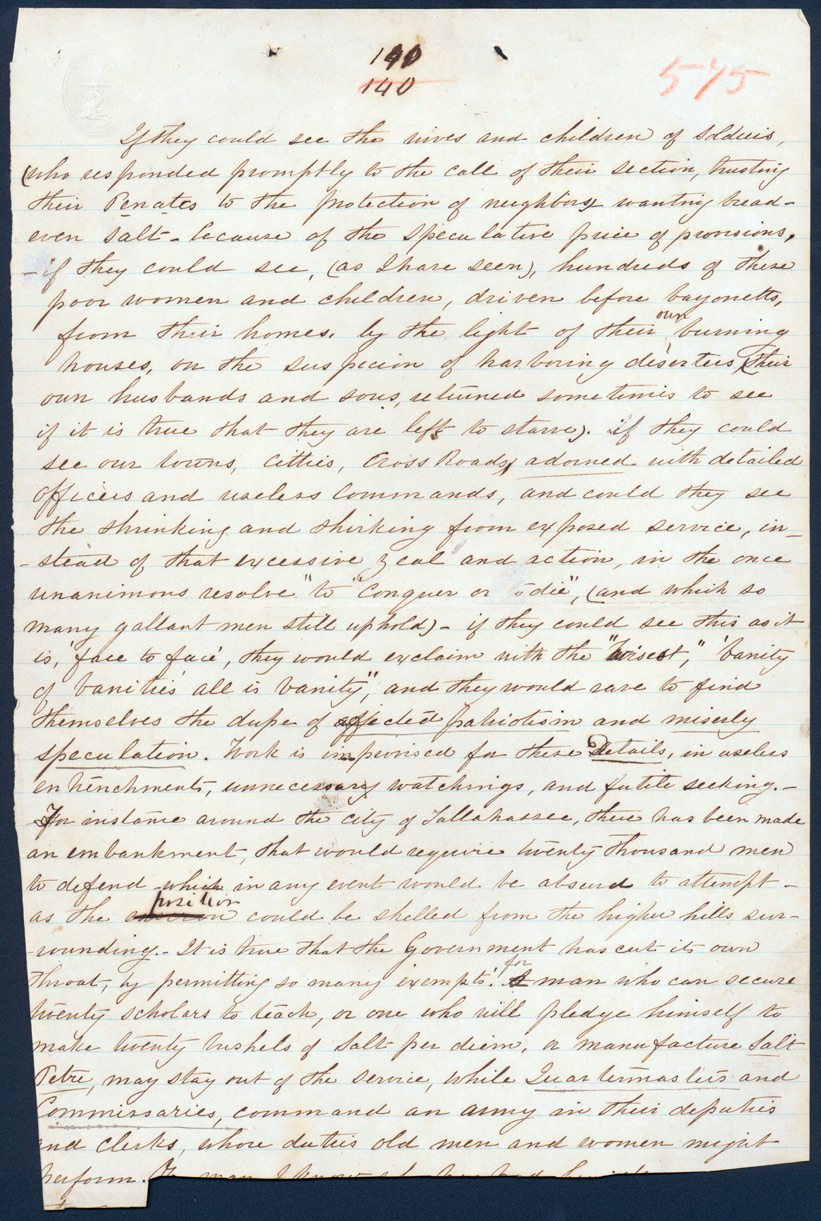 140
140
575
If they could see the wives and children of soldiers,
(who responded promptly to the call of their section, trusting
their Penates to the protection of neighbors, wanting bread -
even salt - because of the speculative price of provisions,
- if they could see, (as I have seen), hundreds of these
poor women and children, driven before bayonetts,
from their homes, by the light of their own burning
houses, on the suspicion of harboring deserters, (their
own husbands and sons, returned sometimes to see
if it is true that they are left to starve). if they could
see our towns, citties, Cross Roads, adorned with detailed
officers and useless commands, and could they see
the shrinking and shirking from exposed service, in-
-stead of that excessive zeal and action, in the once
unanimous resolve "to "conquer or die", (and which so
many gallant men still uphold) - if they could see this as it
is, 'face to face', they would exclaim with the "wisest," 'Vanity
of Vanities' all is Vanity", and they would rave to find
themselves the dupe of affected patriotism and miserly
speculation. Work is improvised for these Details, in useless
entrenchments, unnecessary watchings, and futile seeking. -
For instance around the city of Tallahassee, there has been made
an embankment, that would require twenty thousand men
to defend which in any event would be absurd to attempt -
as the position could be shelled from the higher hills sur-
-rounding. - It is true that the Government has cut its own
throat, by permitting so many 'exempts'. for A man who can secure
twenty scholars to teach, or one who will pledge himself to
make twenty bushels of Salt per diem, or manufacture Salt
Petre, may stay out of the service, while Quartermasters and
Commissaries, command an army in their deputies
and clerks, whose duties old men and women might
perform. man I know